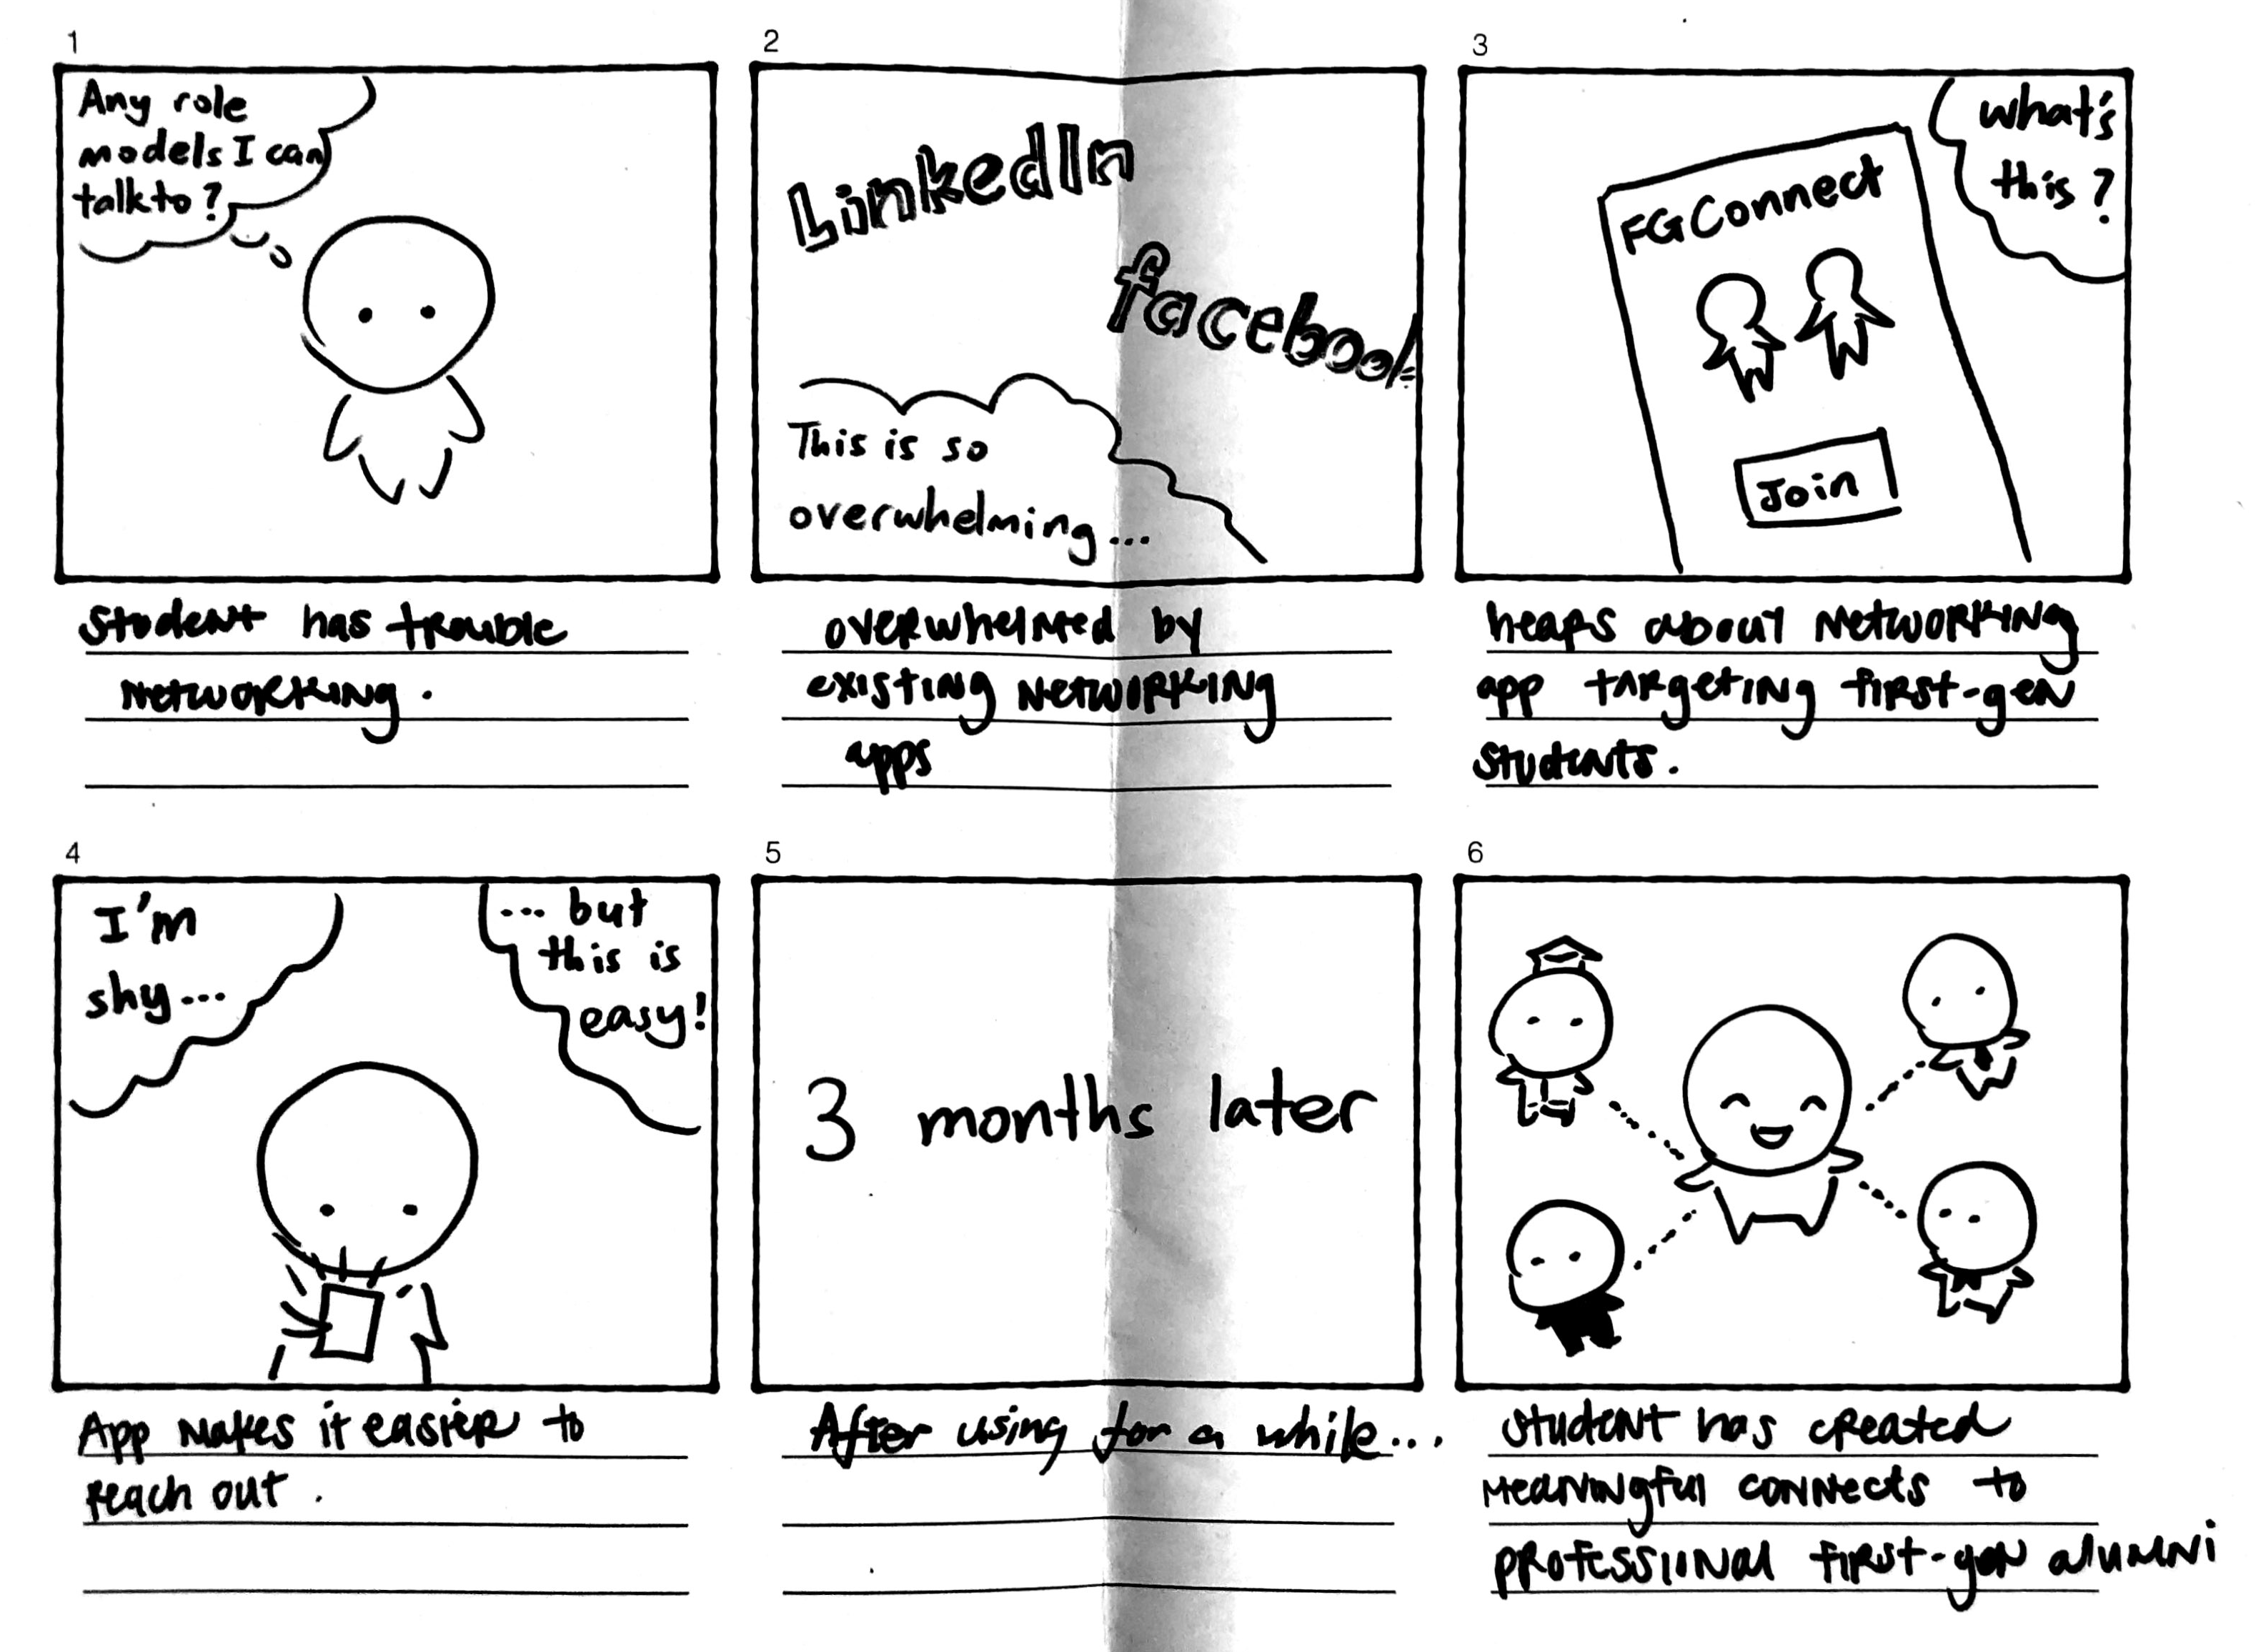 1
Any role
models I can
talk to?
Student has trouble
networking.
2
LinkedIn
facebook
This is so
overwhelming...
overwhelmed by
existing networking
apps
3
what's
this?
FGConnect
Join
hears about networking
app targeting first-gen
students.
4
I'm
shy...
... but
this is
easy!
App makes it easier to
reach out.
5
3 months later
After using for a while...
6
student has created
meaningful connects to
professional first-gen alumni